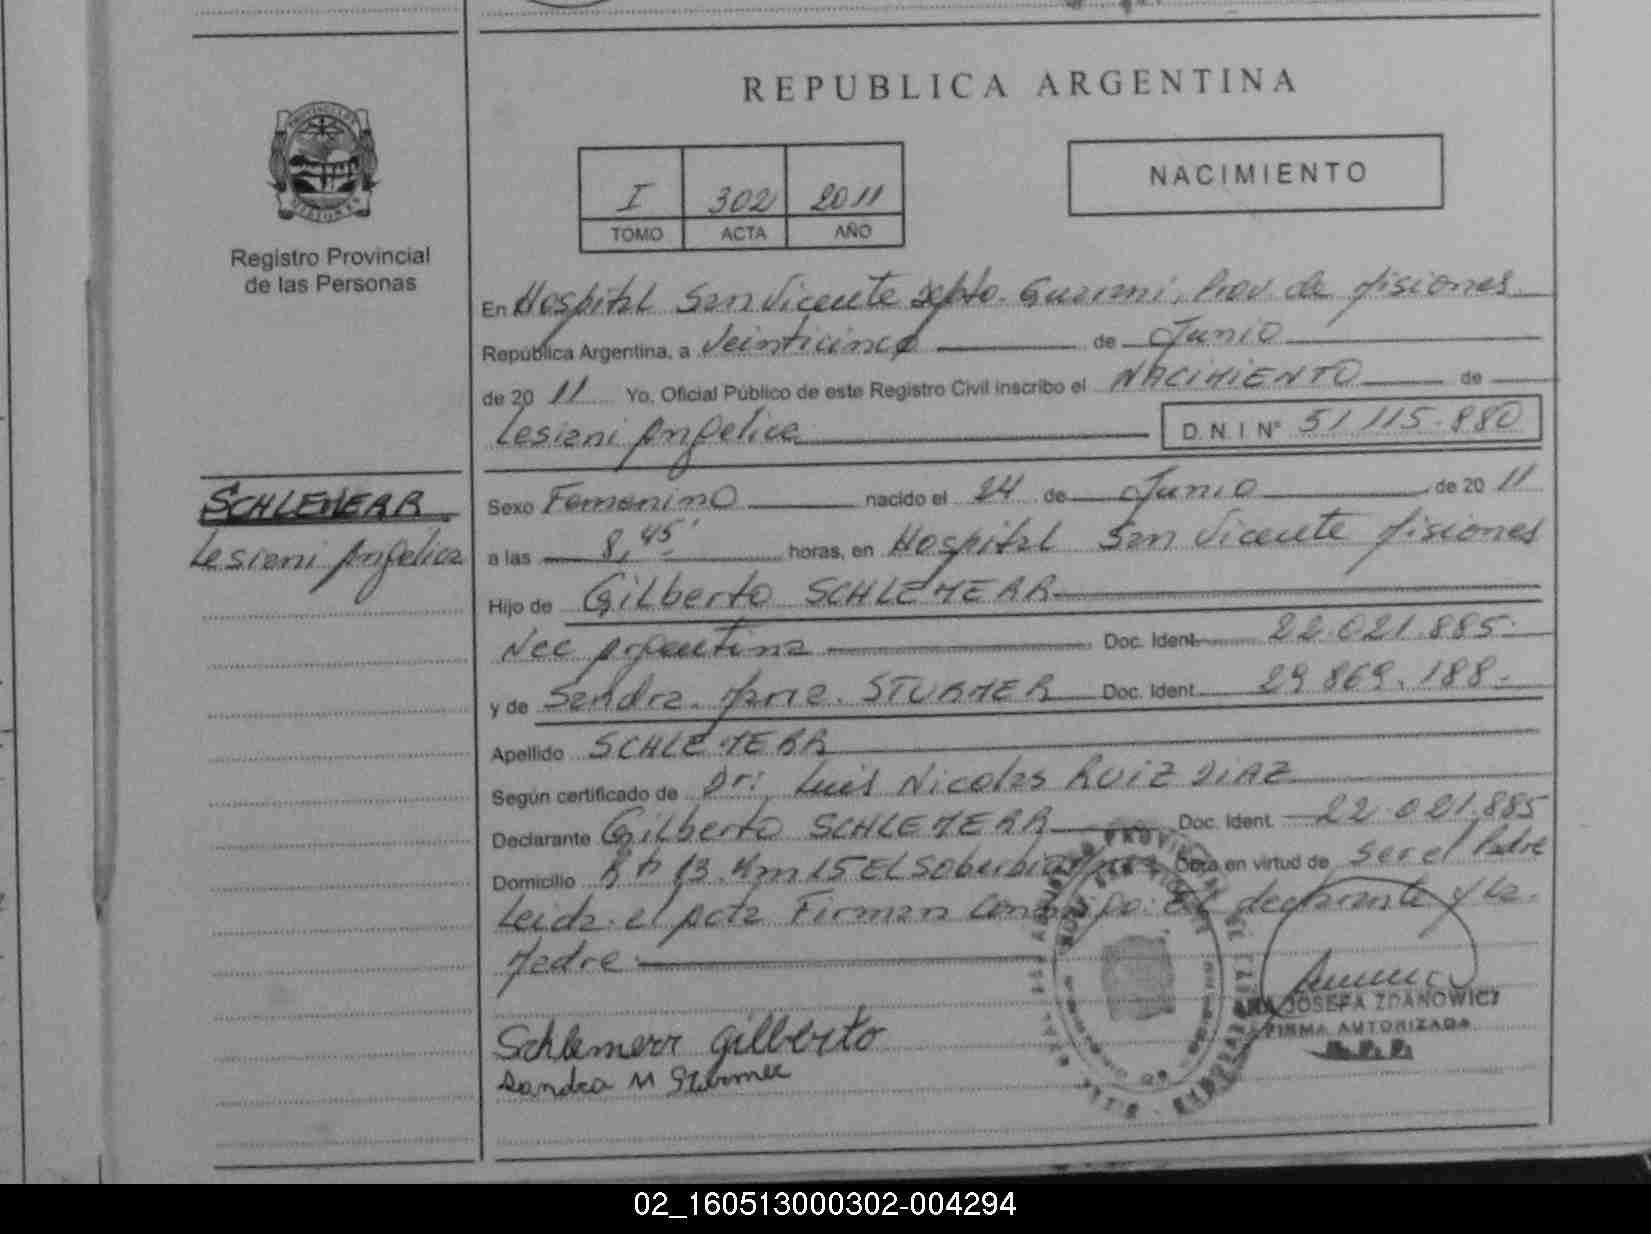 REPUBLICA ARGENTINA
I 302 2011
TOMO ACTA AÑO
NACIMIENTO
Registro Provincial
de las Personas
En Hospital San Vicente Depto. Guarani, Prov. de Misiones
República Argentina, a Veinticinco de Junio
de 20 11 Yo, Oficial Público de este Registro Civil inscribo el NACIMIENTO de
Lesiani Angelica D.N.I Nº 51 115.880
SCHLEMERR
Lesiani Angelica
Sexo Femenino nacido el 24 de Junio de 20 11
a las 8,45' horas, en Hospital San Vicente Misiones
Hijo de Gilberto SCHLEMERR
Nac Argentina Doc. Ident. 22.021.885.
y de Sandra Maria STURMER Doc. Ident. 29.869.188.
Apellido SCHLEMERR
Según certificado de Dr: Luis Nicolas RUIZ DIAZ
Declarante Gilberto SCHLEMERR Doc. Ident. 22 021.885
Domicilio R P 13 Km 15 El Soberbio Obra en virtud de Ser el Padre
Leida el Acta Firman Conmigo: El declarante y la
Madre
Schlemerr gilberto
Sandra M Sturmer
JOSEFA ZDANOWICZ
FIRMA AUTORIZADA
02_160513000302-004294